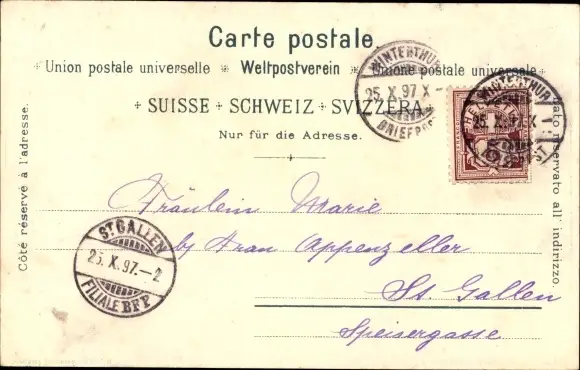 Carte postale.
Union postale universelle ✦ Weltpostverein ✦ Unione postale universale
SUISSE ✦ SCHWEIZ ✦ SVIZZERA
Nur für die Adresse.
Côté réservé à l'adresse.
Lato riservato all' indirizzo.
WINTERTHUR
25. X. 97. X –
BRIEFPOST
WINTERTHUR
25. X. 97. X –
Fräulein Marie
by Frau Appenzeller
St. Gallen
Speisergasse
ST. GALLEN
25. X. 97. – 2
FILIALE BFP